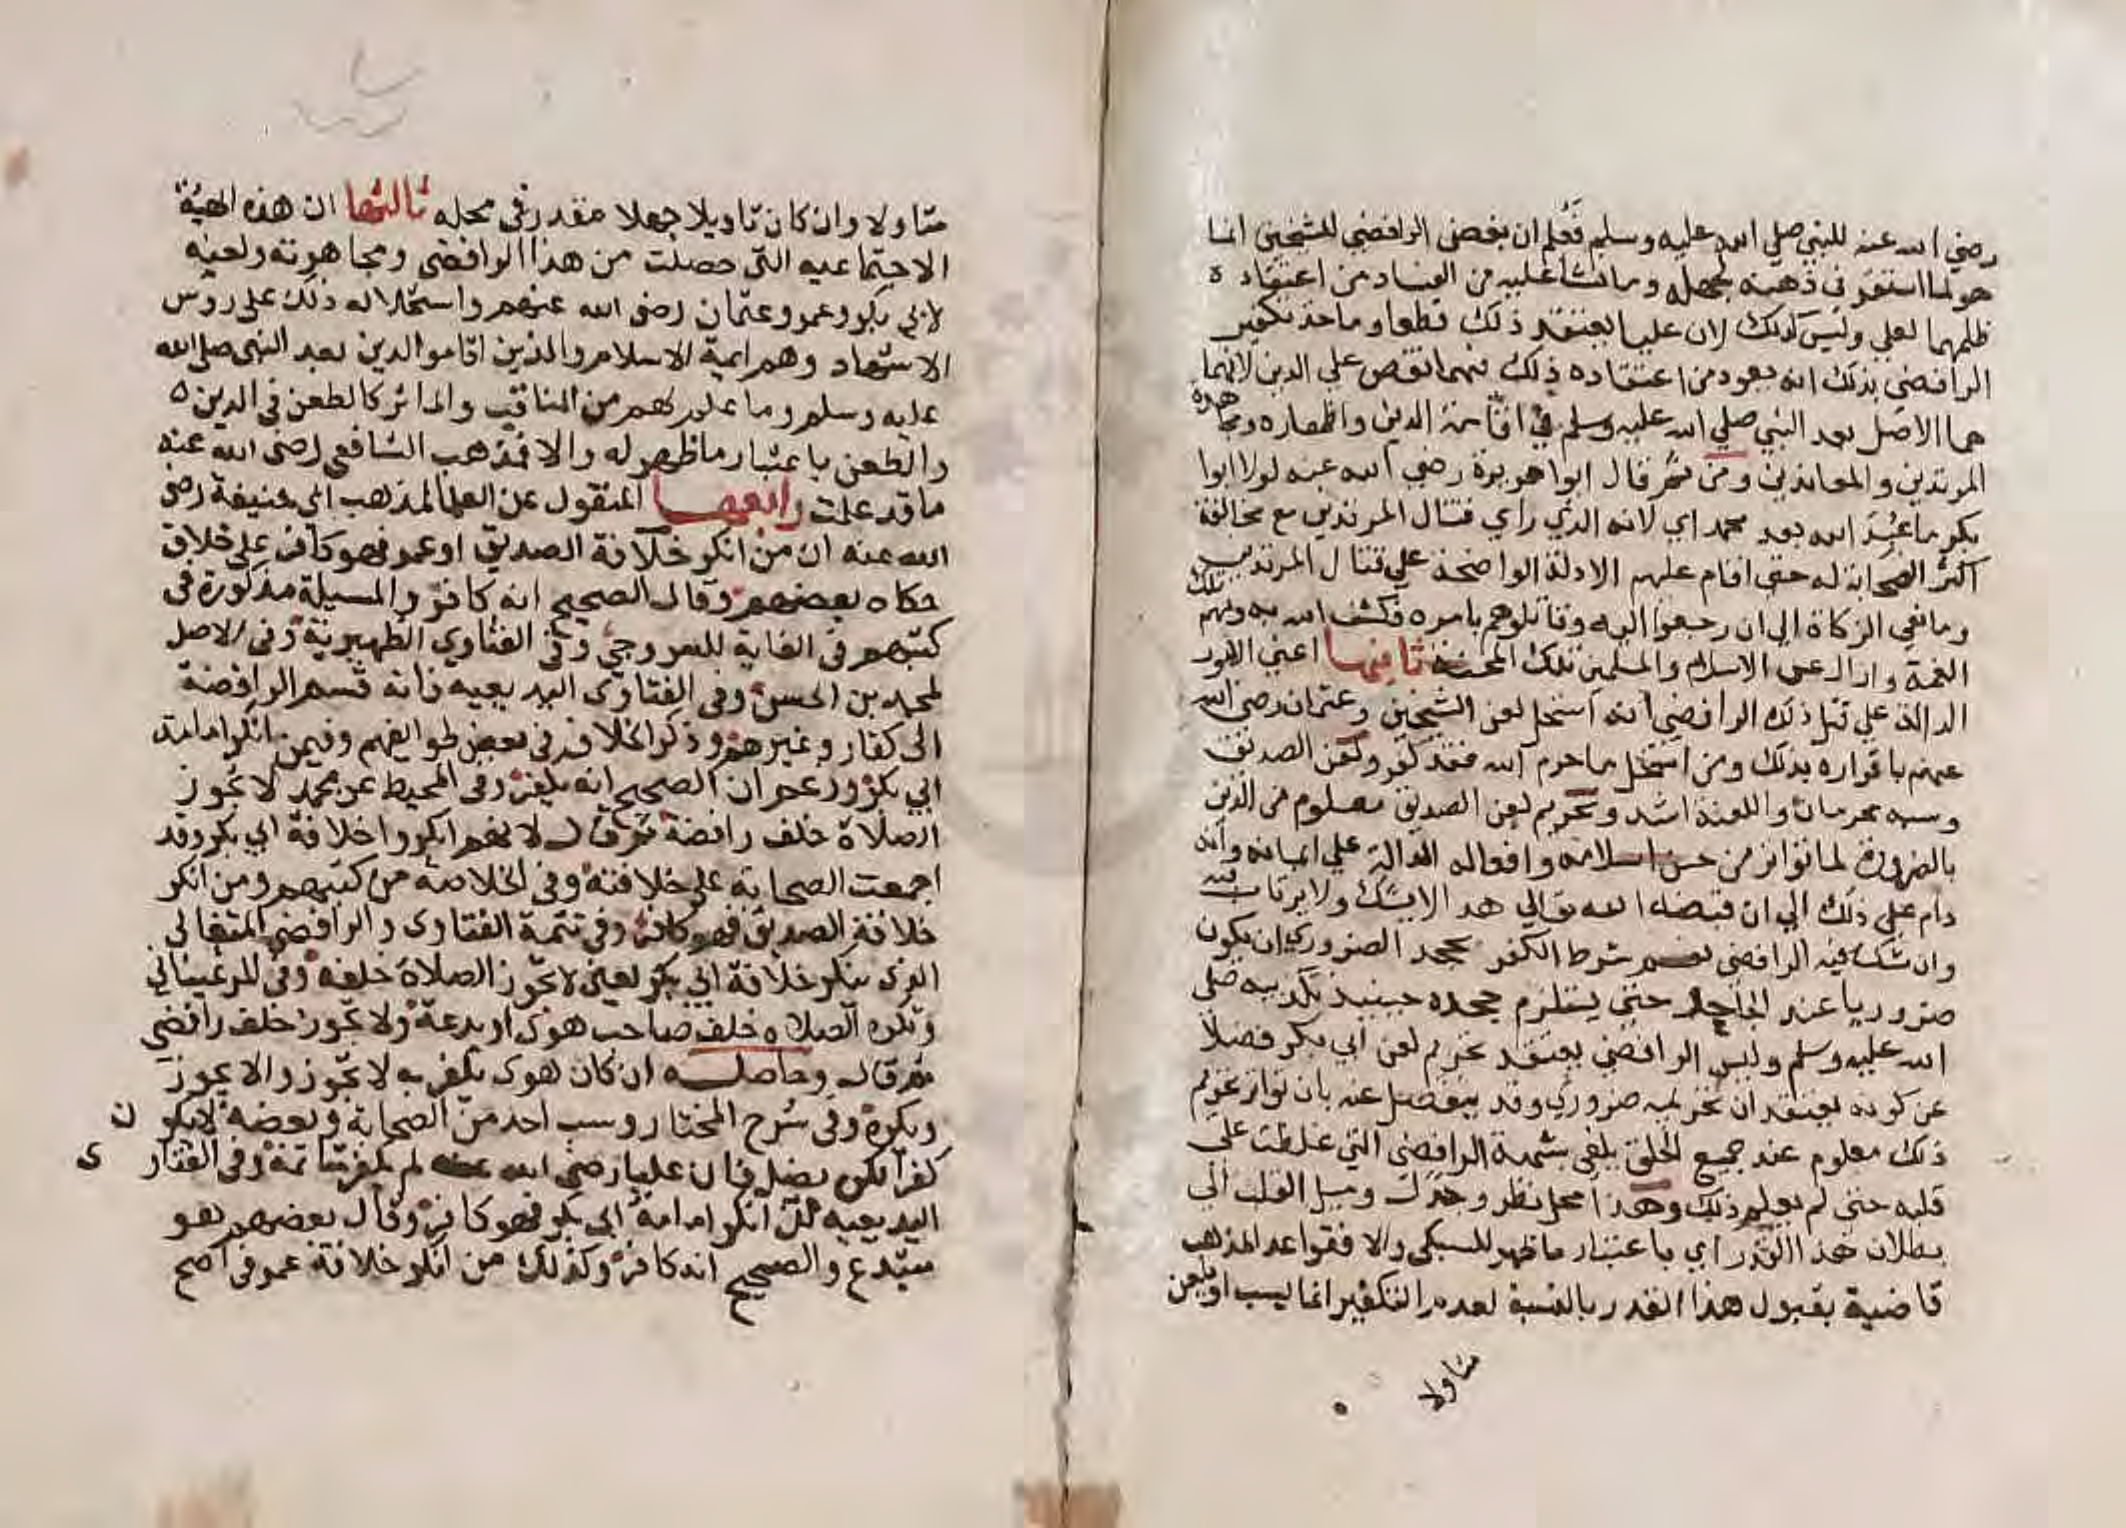 رضي الله عنه للنبي صلي الله عليه وسلم فعلم ان بغض الرافضي للشيخين انما
هو لما استقر في ذهنه لجهله وما نشا عليه من الفساد من اعتقاده
ظلمهما لعلي وليس كذلك لان عليا يعتقد ذلك قطعا وماخذ تكفير
الرافضي بذلك انه يعود من اعتقاده ذلك فيهما نقص علي الدين لانهما
هما الاصل بعد النبي صلي الله عليه وسلم في اقامة الدين واظهاره ومجاهدة
المرتدين والمعاندين ومن ثم قال ابوا هريرة رضي الله عنه لولا ابوا
بكر ما عبد الله بعد محمد اي لانه الذي راي قتال المرتدين مع مخالفة
اكثر الصحابة له حتى اقام عليهم الادلة الواضحة علي قتال المرتدين
ومانعي الزكاة الي ان رجعوا اليه وقاتلوهم بامره فكشف الله به وبهم تلك
الغمة وازال عن الاسلام والمسلمين تلك المحنة ثانيها اعني الامور
الدالة علي قتل ذلك الرافضي انه استحل لعن الشيخين وعثمان رضي الله
عنهم باقراره بذلك ومن استحل ما حرم الله فقد كفر ولعن الصديق
وسبه محرمان واللعنة اشد وتحريم لعن الصديق معلوم من الدين
بالضرورة لما تواتر من حسن اسلامه وافعاله الدالة علي ايمانه وانه
دام علي ذلك الي ان قبضه الله تعالي هذا لا يشك ولا يرتاب فيه
وان شك فيه الرافضي نعم شرط الكفر بجحد الضروري ان يكون
ضروريا عند الجاحد حتي يستلزم جحده حينيذ تكذيبه صلي
الله عليه وسلم وليس الرافضي يعتقد تحريم لعن ابي بكر فضلا
عن كونه يعتقد ان تحريمه ضروري وقد ينفصل عنه بان تواتر تحريم
ذلك معلوم عند جميع الخلق يلغي شبهة الرافضي التي غلظت علي
قلبه حتى لم يعلم ذلك وهذا محل نظر وجدل وميل القلب الي
بطلان هذا القدر اي باعتبار ما ظهر للسبكي والا فقواعد المذهب
قاضية بقبول هذا القدر بالنسبة لعدم التكفير انما يسب او يلعن
متاولا
متاولا وان كان تاويلا جهلا مقدر في محله ثالثها ان هذه الهيئة
الاجتماعيه التي حصلت من هذا الرافضي ومجاهرته ولعنه
لابي بكر وعمر وعثمان رضي الله عنهم واستحلاله ذلك على روس
الاشهاد وهم ايمة الاسلام والذين اقاموا الدين بعد النبي صلى الله
عليه وسلم وما علم لهم من المناقب والماثر كالطعن في الدين
والطعن باعتبار ما ظهر له والا فمذهب الشافعي رضي الله عنه
ما قد علمت رابعها المنقول عن العلما لمذهب ابي حنيفة رضي
الله عنه ان من انكر خلافة الصديق او عمر فهو كافر على خلاف
حكاه بعضهم وقال الصحيح انه كافر والمسيلة مذكورة في
كتبهم في الغاية للسروجي وفي الفتاوي الظهيرية وفي الاصل
لمحمد بن الحسن وفي الفتاوى البديعيه فانه قسم الرافضة
الى كفار وغيرهم وذكر الخلاف في بعض طوايفهم وفيمن انكر امامة
ابي بكر وزعم ان الصحيح انه يكفر وفي المحيط عن محمد لا تجوز
الصلاة خلف رافضة ثم قال لانهم انكروا خلافة ابي بكر وقد
اجمعت الصحابة على خلافته وفي الخلاصة من كتبهم ومن انكر
خلافة الصديق فهو كافر وفي تتمة الفتاوى والرافضي المتغالى
الذي ينكر خلافة ابي بكر يعني لا تجوز الصلاة خلفه وفي المرغيناني
وتكره الصلاه خلف صاحب هوى او بدعة ولا تجوز خلف رافضي
ثم قال وحاصله ان كان هوى يكفر به لا تجوز والا يجوز
ويكره وفي شرح المختار وسب احد من الصحابة وبغضه لا يكون
كفرا لكن يضلل فان عليا رضي الله عنه لم يكفر شاتمه وفي الفتاوى
البديعيه من انكر امامة ابي بكر فهو كافر وقال بعضهم هو
مبتدع والصحيح انه كافر وكذلك من انكر خلافة عمر في اصح